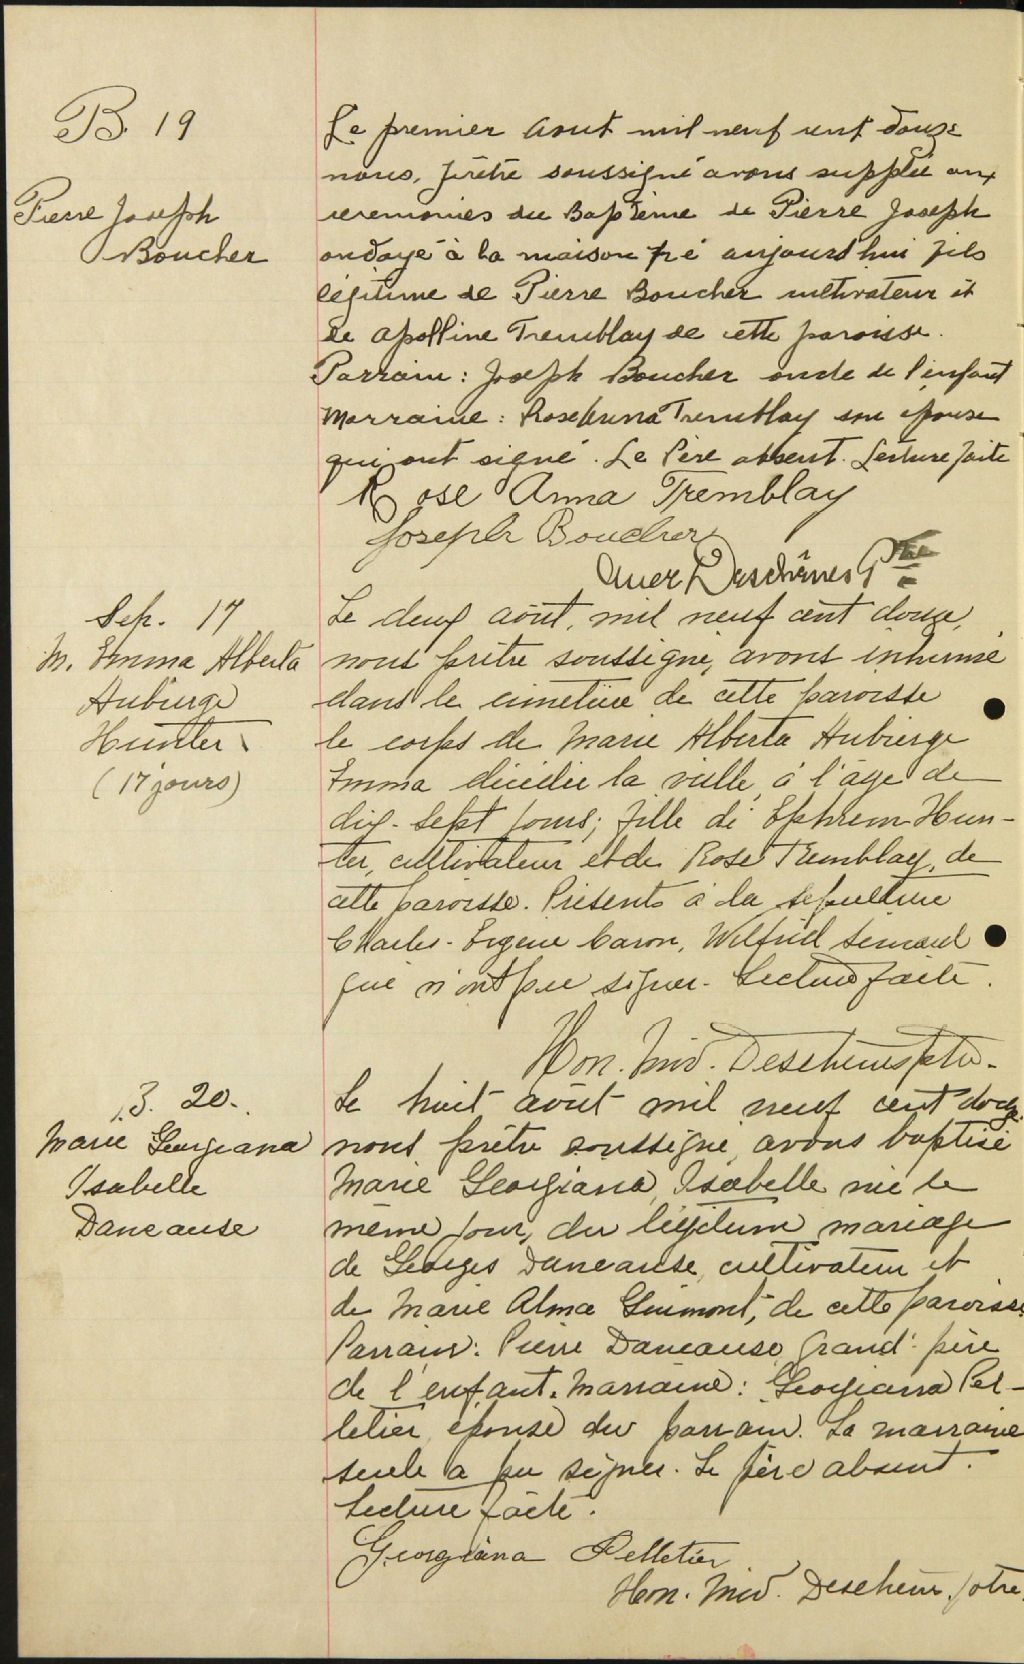 B. 19
Pierre Joseph
Boucher
Le premier Aout mil neuf cent douze
nous, prêtre soussigné avons supplée aux
ceremonies du Baptême de Pierre Joseph
ondoyé à la maison né aujourd'hui fils
légitime de Pierre Boucher cultivateur et
de Apolline Tremblay de cette paroisse.
Parrain : Joseph Boucher oncle de l'enfant
Marraine : RoseAnna Tremblay son epouse
qui ont signé. Le Père absent. Lecture faite
Rose Anna Tremblay
Joseph Boucher
Deschênes Ptre
Sep. 17
M. Emma Alberta
Aubierge
Hunter
(17 jours)
Le deux août, mil neuf cent douze,
nous prêtre soussigné, avons inhumé
dans le cimetière de cette paroisse
le corps de Marie Alberta Aubierge
Emma décédée la veille, à l'âge de
dix-sept jours; fille de Ephrem Hun-
ter, cultivateur et de Rose Tremblay, de
cette paroisse. Présents à la sépulture
Charles-Eugène Caron, Wilfrid Simard
qui n'ont pu signer. Lecture faite.
Hon. Deschenes ptre.
B. 20.
Marie Georgiana
Isabelle
Dancause
Le huit août mil neuf cent douze
nous prêtre soussigné, avons baptisé
Marie Georgiana Isabelle née le
même jour, du légitime mariage
de Georges Dancause, cultivateur et
de Marie Alma Guimont, de cette paroisse.
Parrain: Pierre Dancause, Grand-père
de l'enfant. Marraine: Georgianna Pel-
letier, épouse du parrain. La marraine
seule a pu signer. Le père absent.
Lecture faite.
Georgiana Pelletier
Hon. Deschenes, ptre.